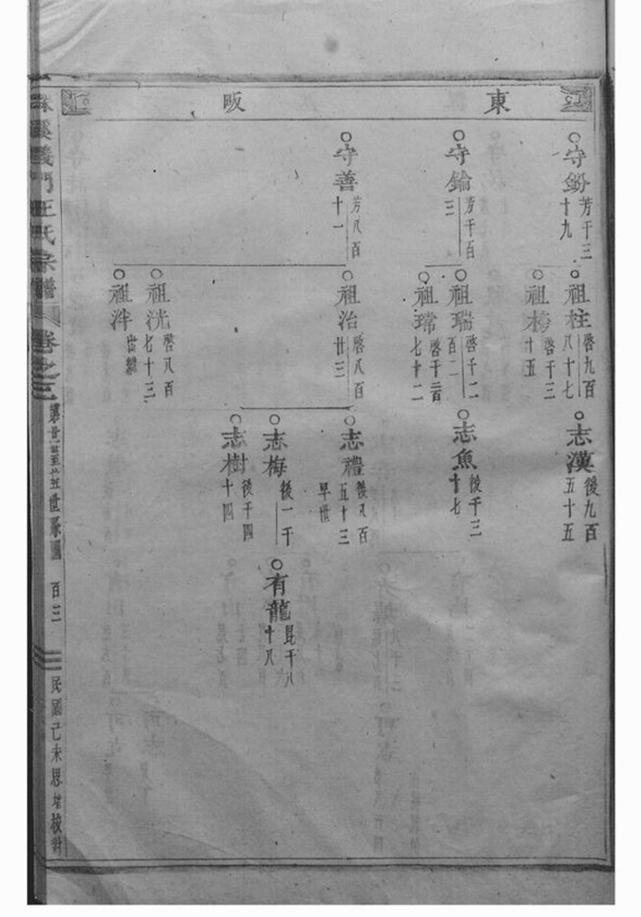 東
阪
守鈖
芳千三
十九
守錀
芳千百
三
守善
芳八百
十一
祖柱
啓九百
八十七
祖
啓千三
十五
祖瑞
啓千二
百二
祖瑺
啓千二百
七十二
祖治
啓八百
廿三
祖洸
啓八百
七十三
祖泮
出繼
志漢
後九百
五十五
志魚
後千三
十七
志禮
後八百
五十三
早世
志梅
後一千
志樹
後千四
十四
有龍
昆千八
十八
溪義門王氏宗譜
卷之三
世至 世系圖
百三
民國己未思 堂校對